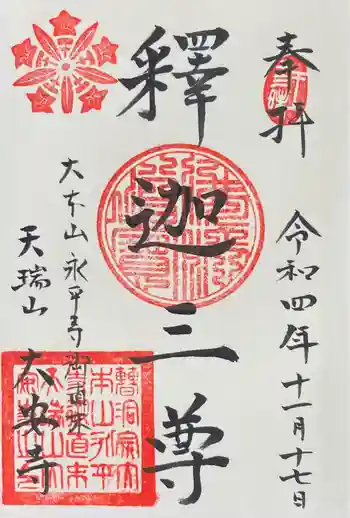 奉拝
令和四年十一月十七日
釋迦三尊
大本山永平寺御直末
天瑞山
大安寺